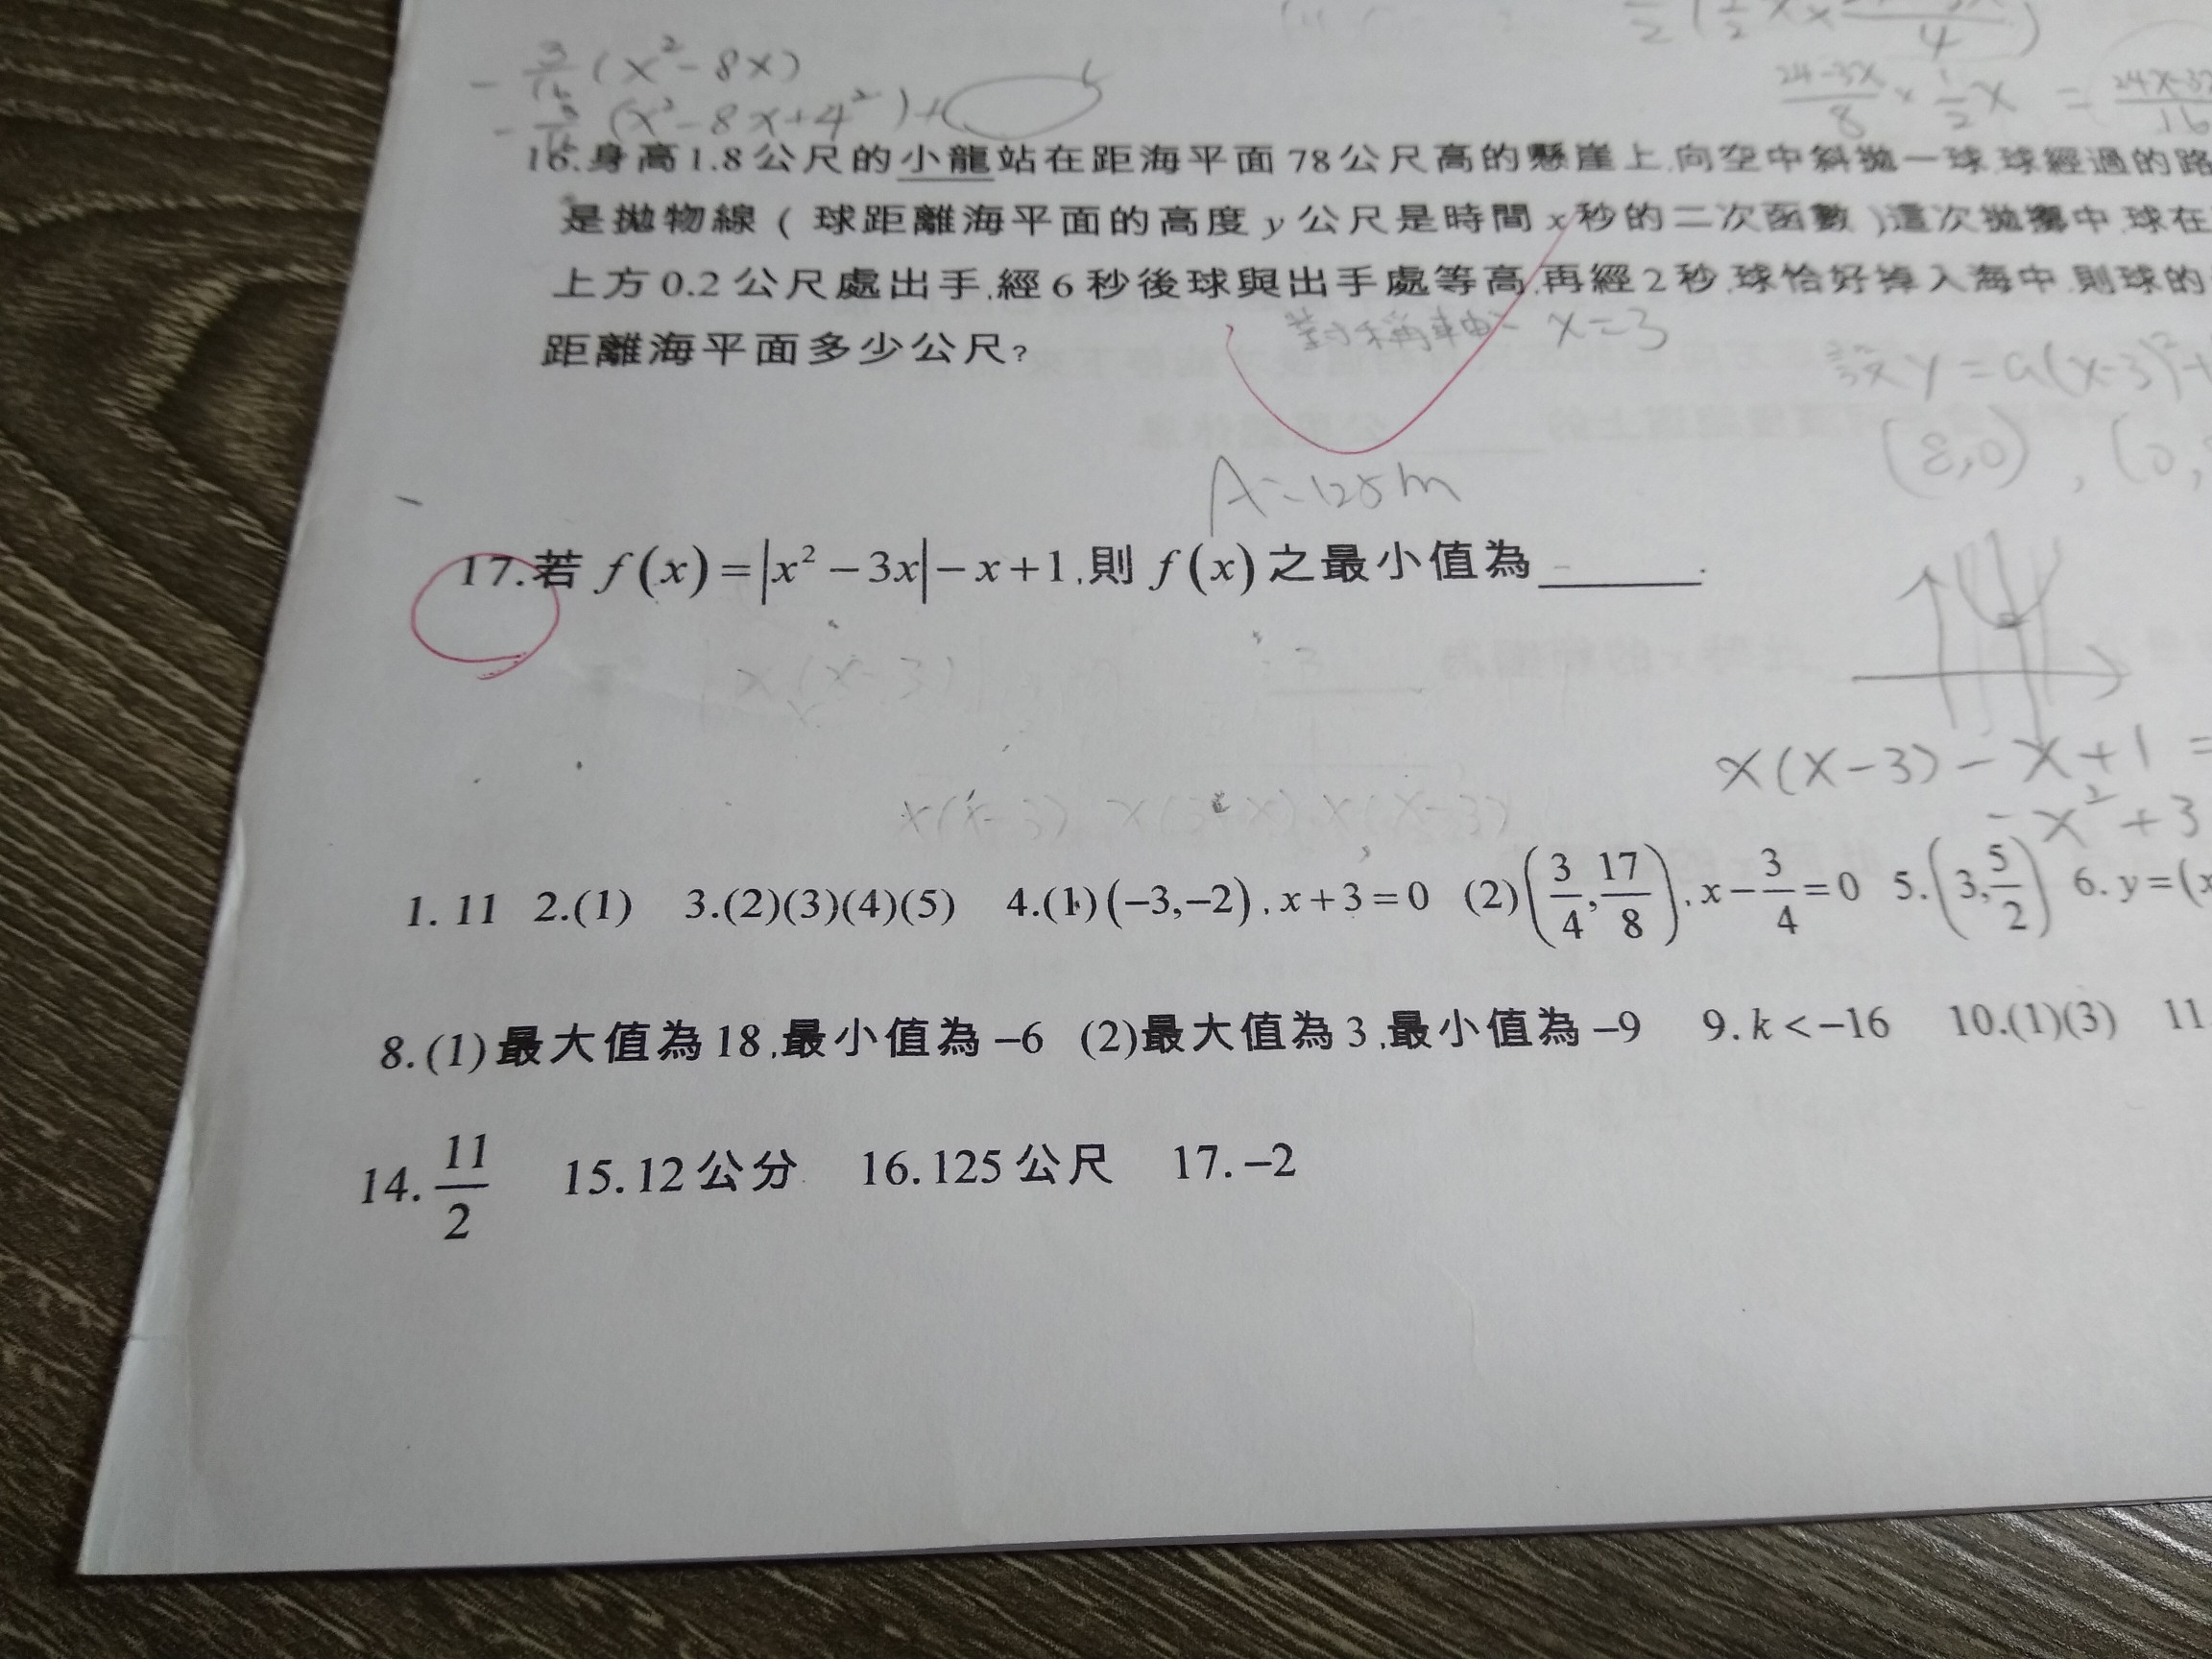 - 3/16 (x² - 8x)
- 3/16 (x² - 8x + 4²) +
24-3x/8 × 1/2 x =
16.身高1.8公尺的小龍站在距海平面78公尺高的懸崖上,向空中斜拋一球,球經過的路
是拋物線(球距離海平面的高度y公尺是時間x秒的二次函數),這次拋擲中,球在
上方0.2公尺處出手,經6秒後球與出手處等高,再經2秒,球恰好掉入海中,則球的
距離海平面多少公尺?
對稱軸: x=3
設 y = a(x-3)²+
(8,0), (0,
A=125m
17.若 f(x)=|x²-3x|-x+1,則 f(x)之最小值為______.
|x(x-3)|
x(x-3)-x+1 =
x(x-3) x(3-x) x(x-3)
-x²+3
1. 11 2.(1) 3.(2)(3)(4)(5) 4.(1)(-3,-2), x+3=0 (2)(3/4, 17/8), x-3/4=0 5.(3, 5/2) 6. y=(x
8.(1)最大值為18,最小值為-6 (2)最大值為3,最小值為-9 9. k<-16 10.(1)(3) 11
14. 11/2 15.12公分 16.125公尺 17.-2